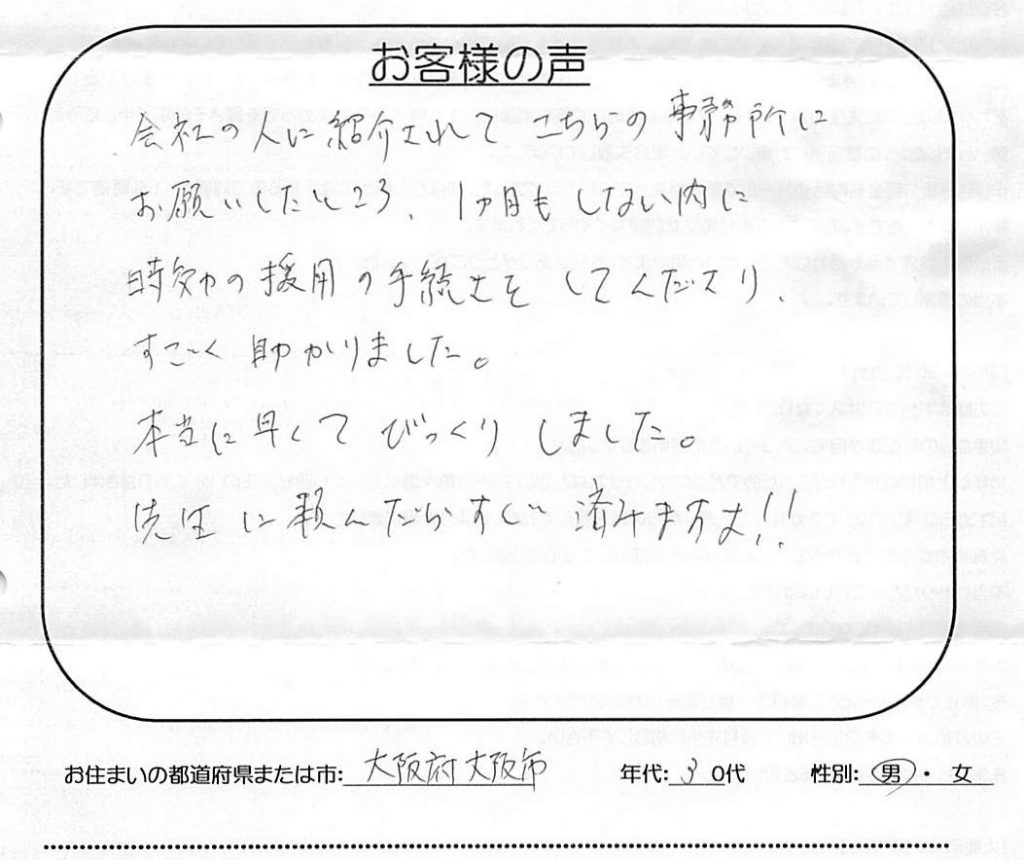 お客様の声
会社の人に紹介されて こちらの事務所に
お願いしたところ、1ヶ月もしない内に
時効の援用の手続きを してくださり、
すごく助かりました。
本当に早くて びっくりしました。
先生に頼んだらすぐ 済みますよ!!
お住まいの都道府県または市: 大阪府大阪市 年代: 30代 性別: 男・女